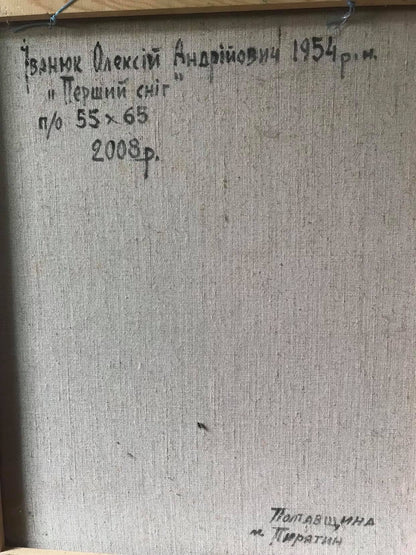 Іванюк Олексій Андрійович 1954 р.н.
„Перший сніг"
п/о 55×65
2008р.
Полтавщина
м. Пирятин